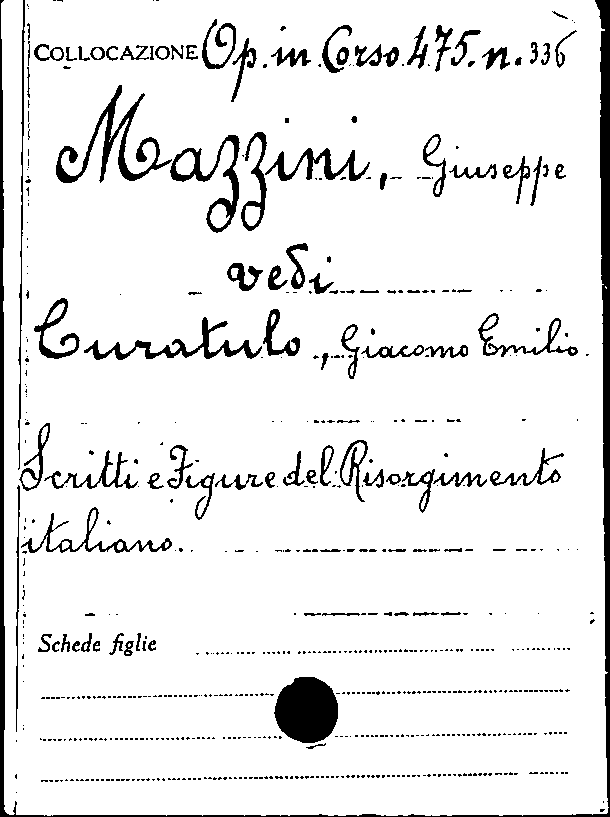 COLLOCAZIONE Op. in Corso 475. n. 336
Mazzini, Giuseppe
vedi
Curatulo, Giacomo Emilio.
Scritti e Figure del Risorgimento
italiano.
Schede figlie